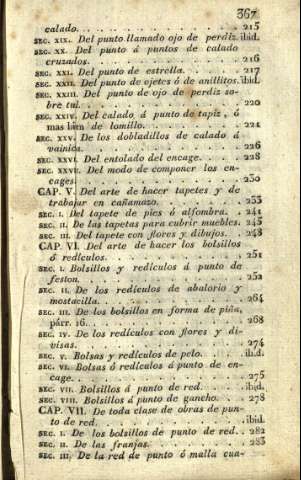 367
calado. . . . . . . . . . . . . . . 215
SEC. XIX. Del punto llamado ojo de perdiz. ibid.
SEC. XX. Del punto á puntos de calado
cruzados. . . . . . . . . . . . . . 216
SEC. XXI. Del punto de estrella. . . . . 217
SEC. XXII. Del punto de ojetes ó de anillitos. ibid.
SEC. XXIII. Del punto de ojo de perdiz so-
bre tul. . . . . . . . . . . . . . 220
SEC. XXIV. Del calado á punto de tapiz, ó
mas bien de lomillo. . . . . . . . . 224
SEC. XXV. De los dobladillos de calado á
vainica. . . . . . . . . . . . . . 226
SEC. XXVI. Del entolado del encage. . . . 228
SEC. XXVII. Del modo de componer los en-
cages. . . . . . . . . . . . . . . 230
CAP. V. Del arte de hacer tapetes y de
trabajar en cañamazo. . . . . . . . 233
SEC. I. Del tapete de pies ó alfombra. . . 241
SEC. II. De las tapetas para cubrir muebles. 245
SEC. III. Del tapete con flores y dibujos. . 248
CAP. VI. Del arte de hacer los bolsillos
ó redículos. . . . . . . . . . . . . 251
SEC. I. Bolsillos y redículos á punto de
feston. . . . . . . . . . . . . . . 252
SEC. II. De los redículos de abalorio y
mostacilla. . . . . . . . . . . . . 264
SEC. III. De los bolsillos en forma de piña,
párr. 16. . . . . . . . . . . . . . 268
SEC. IV. De los redículos con flores y di-
visas. . . . . . . . . . . . . . . 274
SEC. V. Bolsas y redículos de pelo. . . . ibid.
SEC. VI. Bolsas ó redículos á punto de en-
cage. . . . . . . . . . . . . . . 275
SEC. VII. Bolsillos á punto de red. . . . ibid.
SEC. VIII. Bolsillos á punto de gancho. . . 278
CAP. VII. De toda clase de obras de pun-
to de red. . . . . . . . . . . . . ibid.
SEC. I. De los bolsillos de punto de red. . 282
SEC. II. De las franjas. . . . . . . . . 283
SEC. III. De la red de punto ó malla cua-